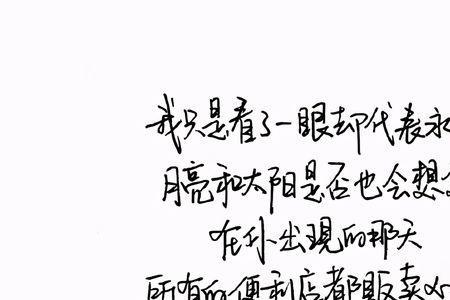 我只是看了一眼却代表永
月亮和太阳是否也会想
在你出現的那天
所有的便利店都販卖